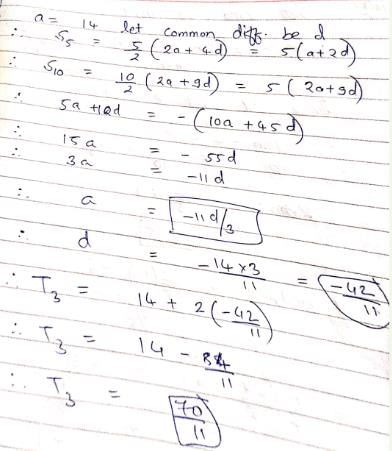 a = 14 let common diff. be d
∴ S5 = 5/2 (2a + 4d) = 5(a+2d)
∴ S10 = 10/2 (2a + 9d) = 5 (2a+9d)
∴ 5a + 10d = - (10a + 45d)
∴ 15a = - 55d
∴ 3a = -11d
∴ a = -11d/3
∴ d = -14×3/11 = -42/11
∴ T3 = 14 + 2(-42/11)
∴ T3 = 14 - 84/11
∴ T3 = 70/11